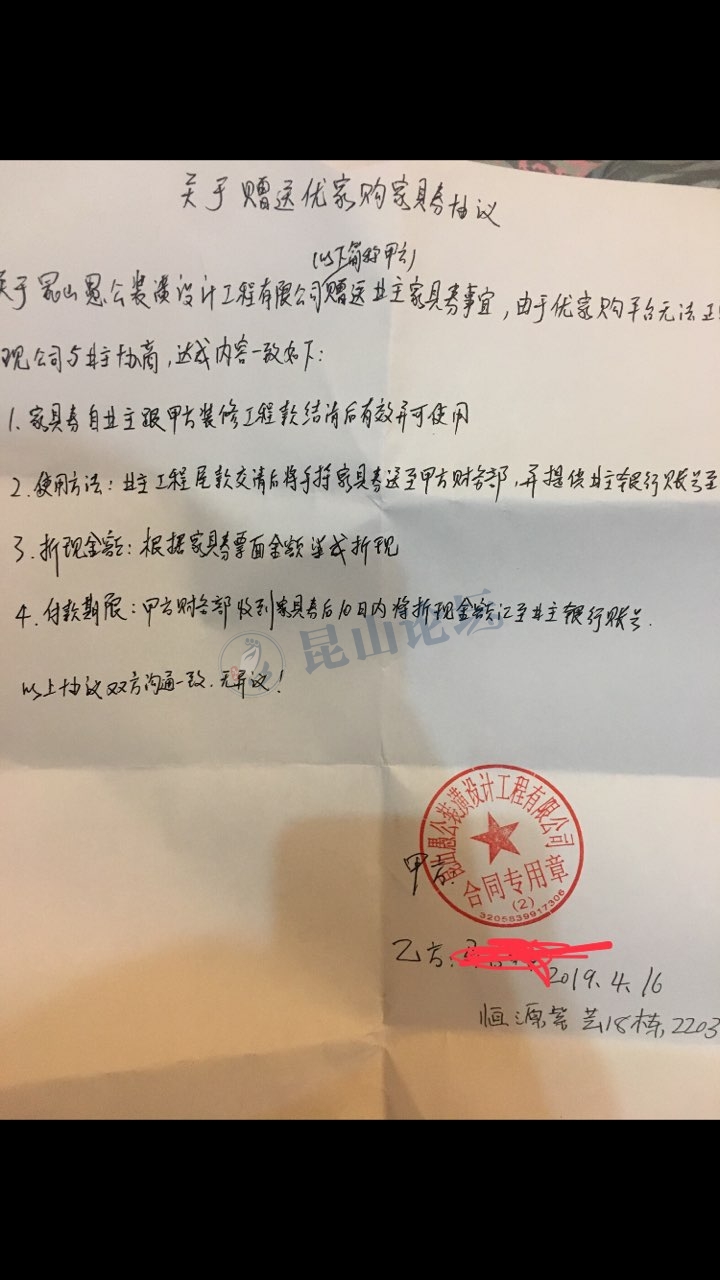 关于赠送优家购家具券协议
(以下简称甲方)
关于昆山愚公装潢设计工程有限公司赠送业主家具券事宜,由于优家购平台无法正
现公司与业主协商,达成内容一致如下:
1.家具券自业主跟甲方装修工程款结清后有效并可使用
2.使用方法:业主工程尾款交清后将手持家具券送至甲方财务部,并提供业主银行账号至
3.折现金额:根据家具券票面金额 折现
4.付款期限:甲方财务部收到家具券后10日内将折现金额汇至业主银行账号.
昆山论坛
以上协议双方沟通一致.无异议!
昆山愚公装潢设计工程有限公司
甲方:
合同专用章
(2)
3205839917306
乙方:
2019.4.16
恒源 18栋,2203